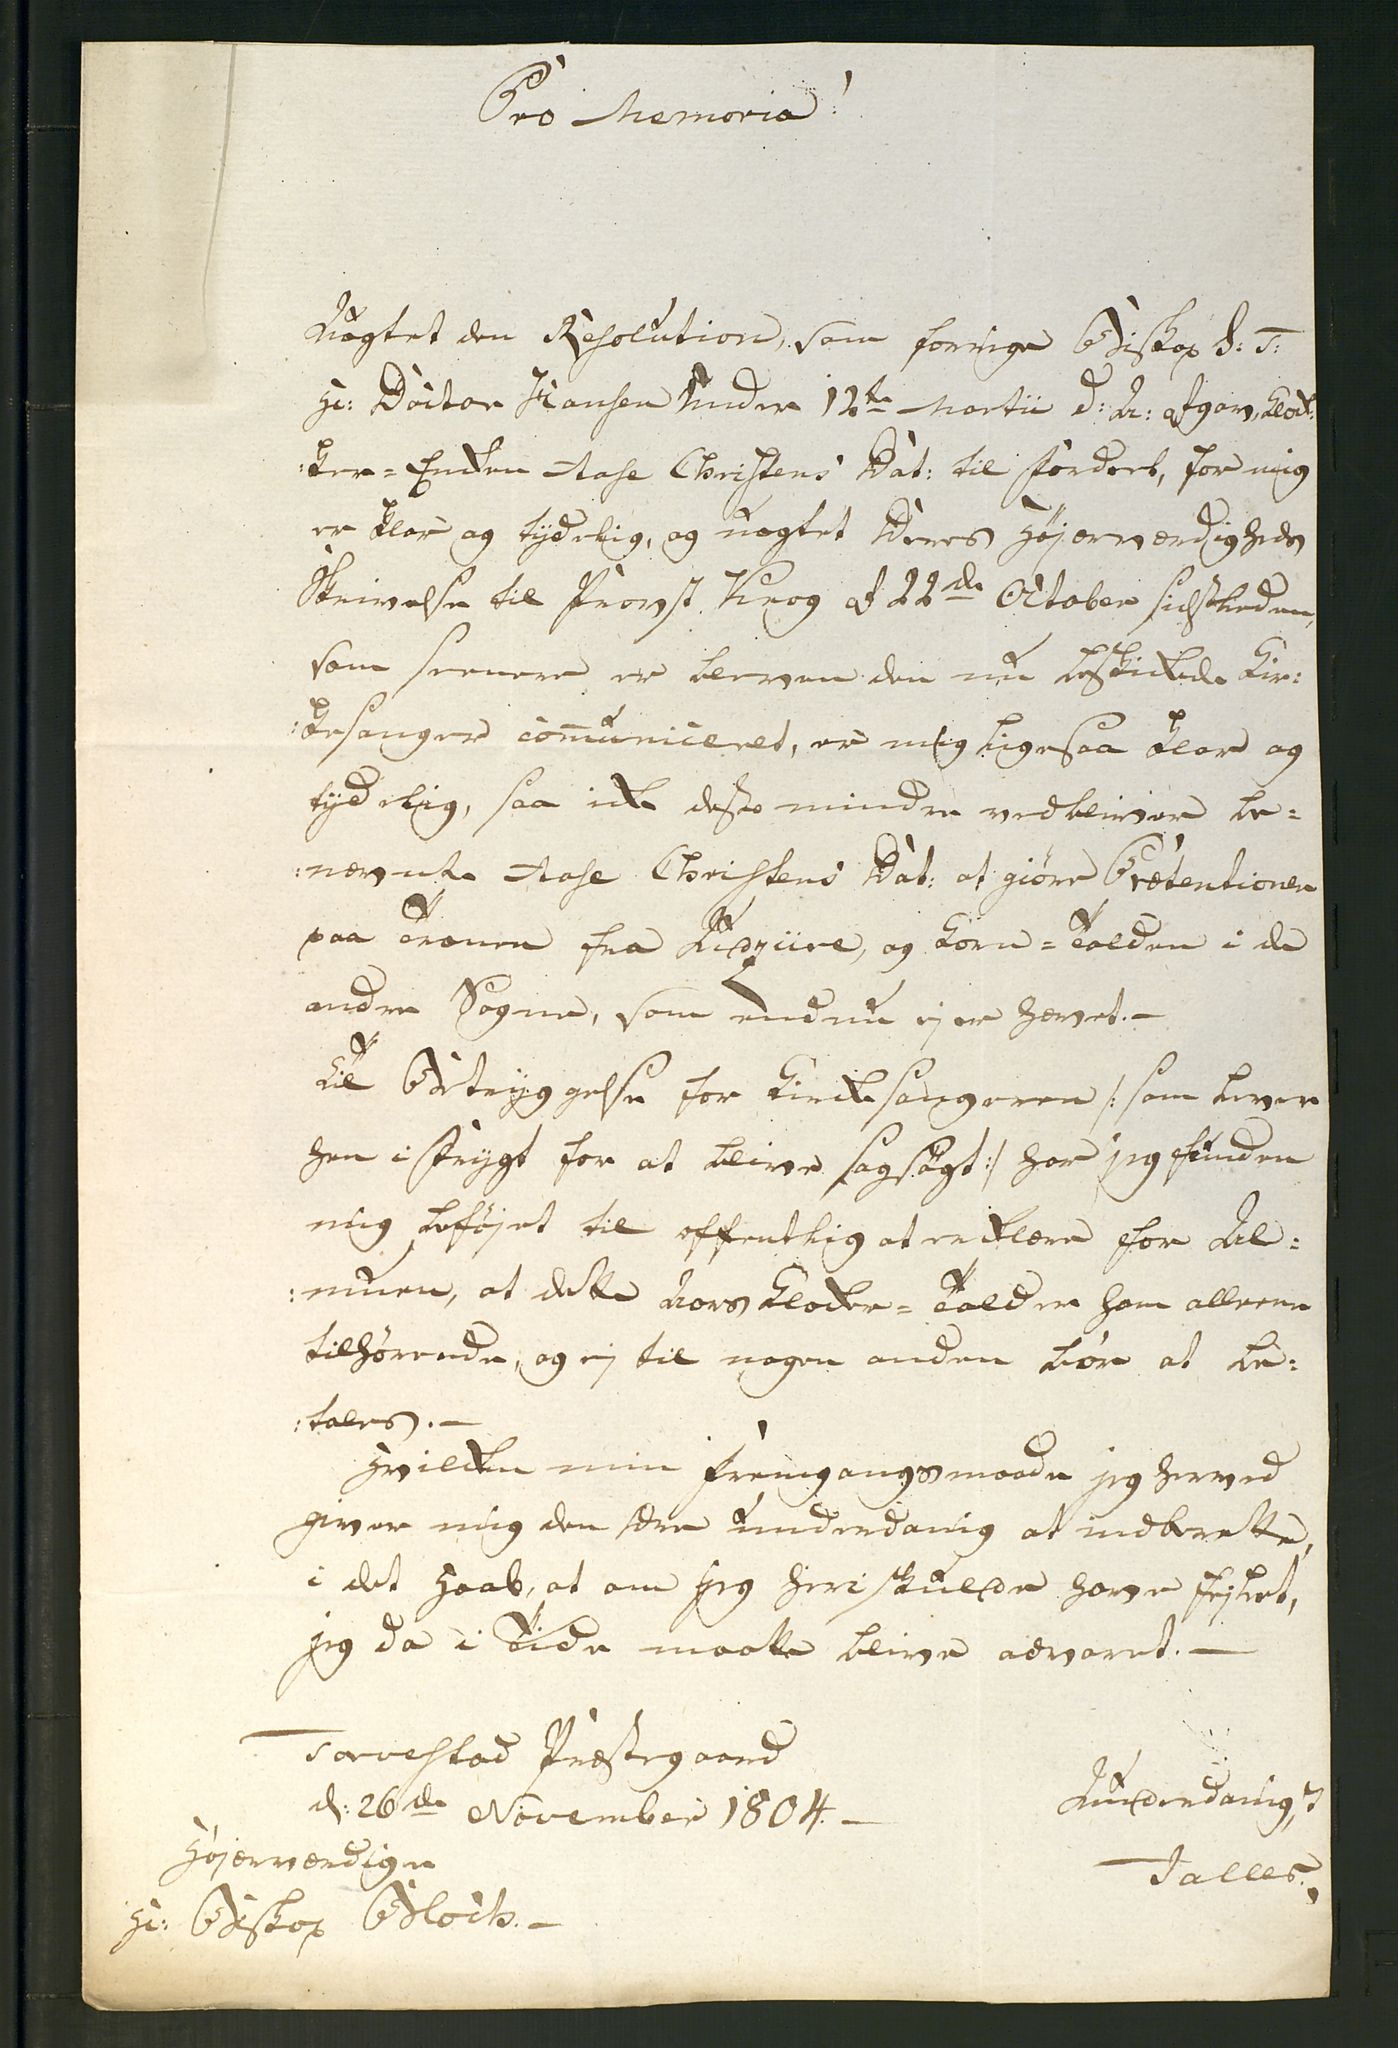 Pro Memoria!
Uagtet den Resolution, som forrige Biskop S: T:
Hr: Doctor Hansen under 12te Martii d: A: afgav, Klok¬
:ker-Enken Aase Christens Dat: til Fordeel, for mig
er klar og tydelig, og uagtet Deres Højærværdigheds
Skrivelse til Provst Krog af 22de October sidstleden,
som senere er bleven den nu beskikkede Kir:
:kesanger communiceret, er mig ligesaa klar og
tydelig, saa ikke desto mindre vedbliver be=
:nævnte Aase Christens Dat: at giøre Prætentioner
paa Tranen fra Udzire, og Korn=Tolden i de
andre Sogne, som endnu ej er hævet.—
Til Betryggelse for Kirkesangeren /: som lever
hen i Frygt for at blive sagsøgt :/ har jeg funden
mig beføjet til offentlig at erklære for Al=
:muen, at dette Aars Klokker=Told er ham alleene
tilhørende, og ej til nogen anden bør at be:
:tales.—
Hvilken min Fremgangsmaade jeg herved
giver mig den Ære underdanig at indberette,
i det Haab, at om jeg heri skulde have fejlet,
jeg da i Tide maatte blive advaret.—
Torvestad Præstegaard
d: 26de November 1804.—
Underdanigst
Højærværdige
Talles.
Hr: Biskop Bloch.—